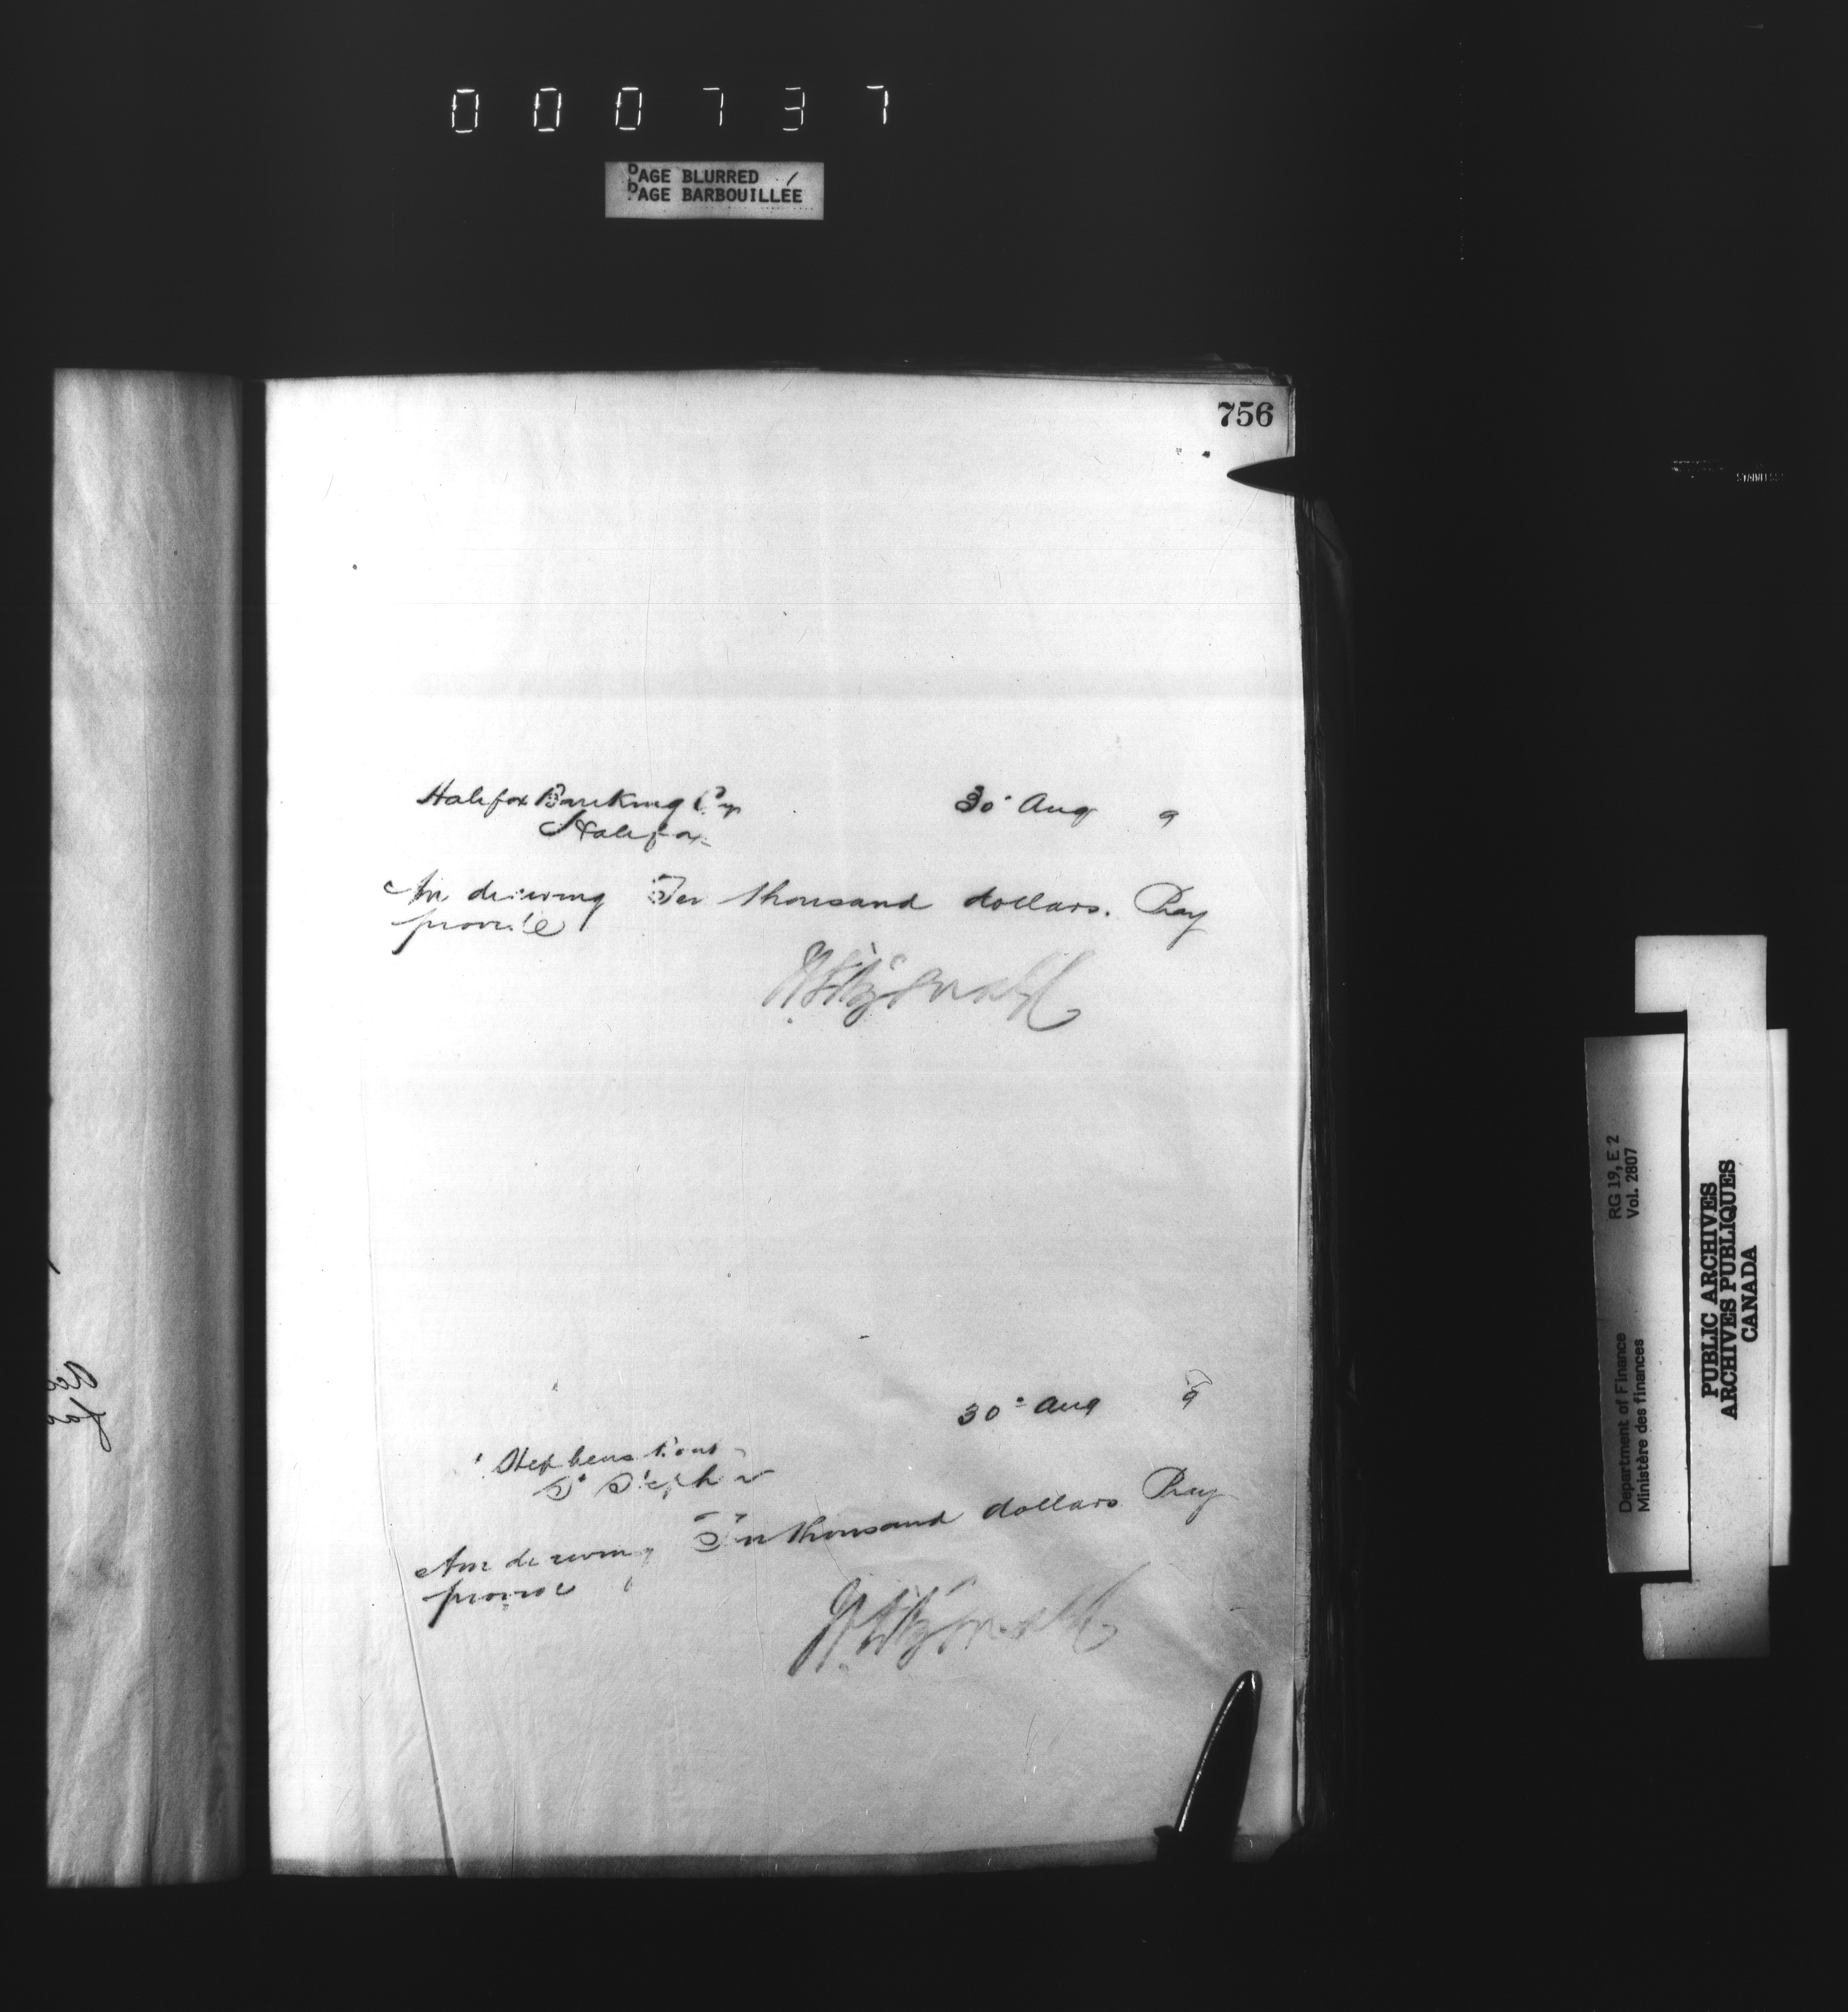 000737
PAGE BLURRED
PAGE BARBOUILLÉE
756
Halifax Banking Cy
30 Aug 9
Halifax
Am drawing Ten thousand dollars. Pray
provide
30 Aug 9
St Stephen
Am drawing Ten thousand dollars Pray
provide
RG 19, E 2
Vol. 2807
Department of Finance
Ministère des finances
PUBLIC ARCHIVES
ARCHIVES PUBLIQUES
CANADA